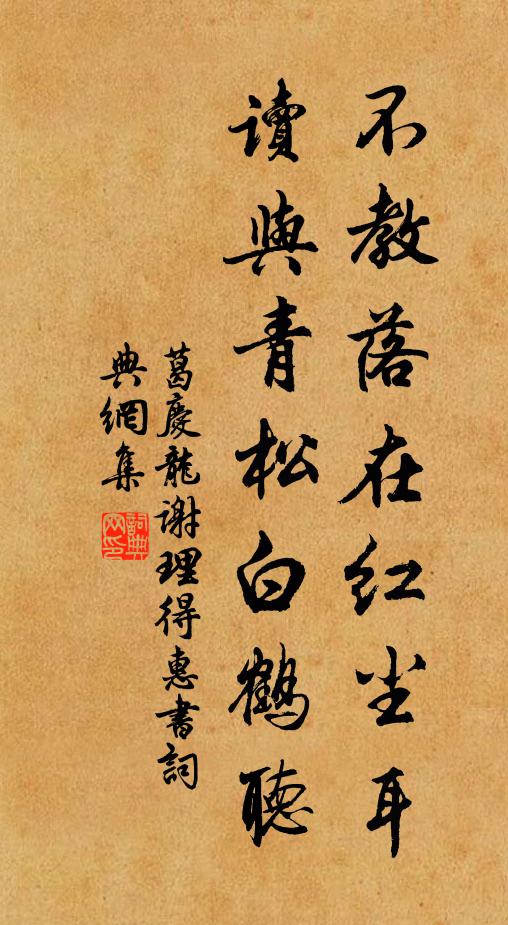 不教落在红尘耳
讀與青松白鶴聽
葛慶龍謝理得惠書詞
典網集
詞典网印